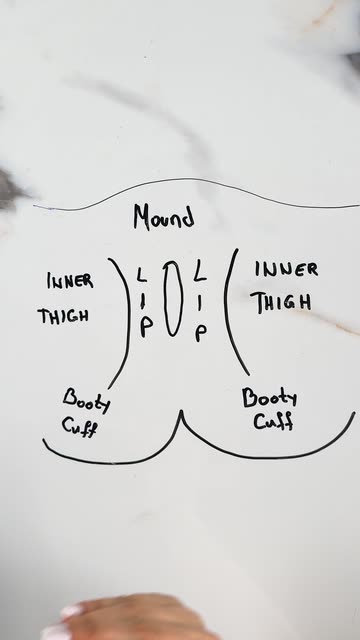 Mound
INNER
THIGH
L
I
P
L
I
P
INNER
THIGH
Booty
Cuff
Booty
Cuff